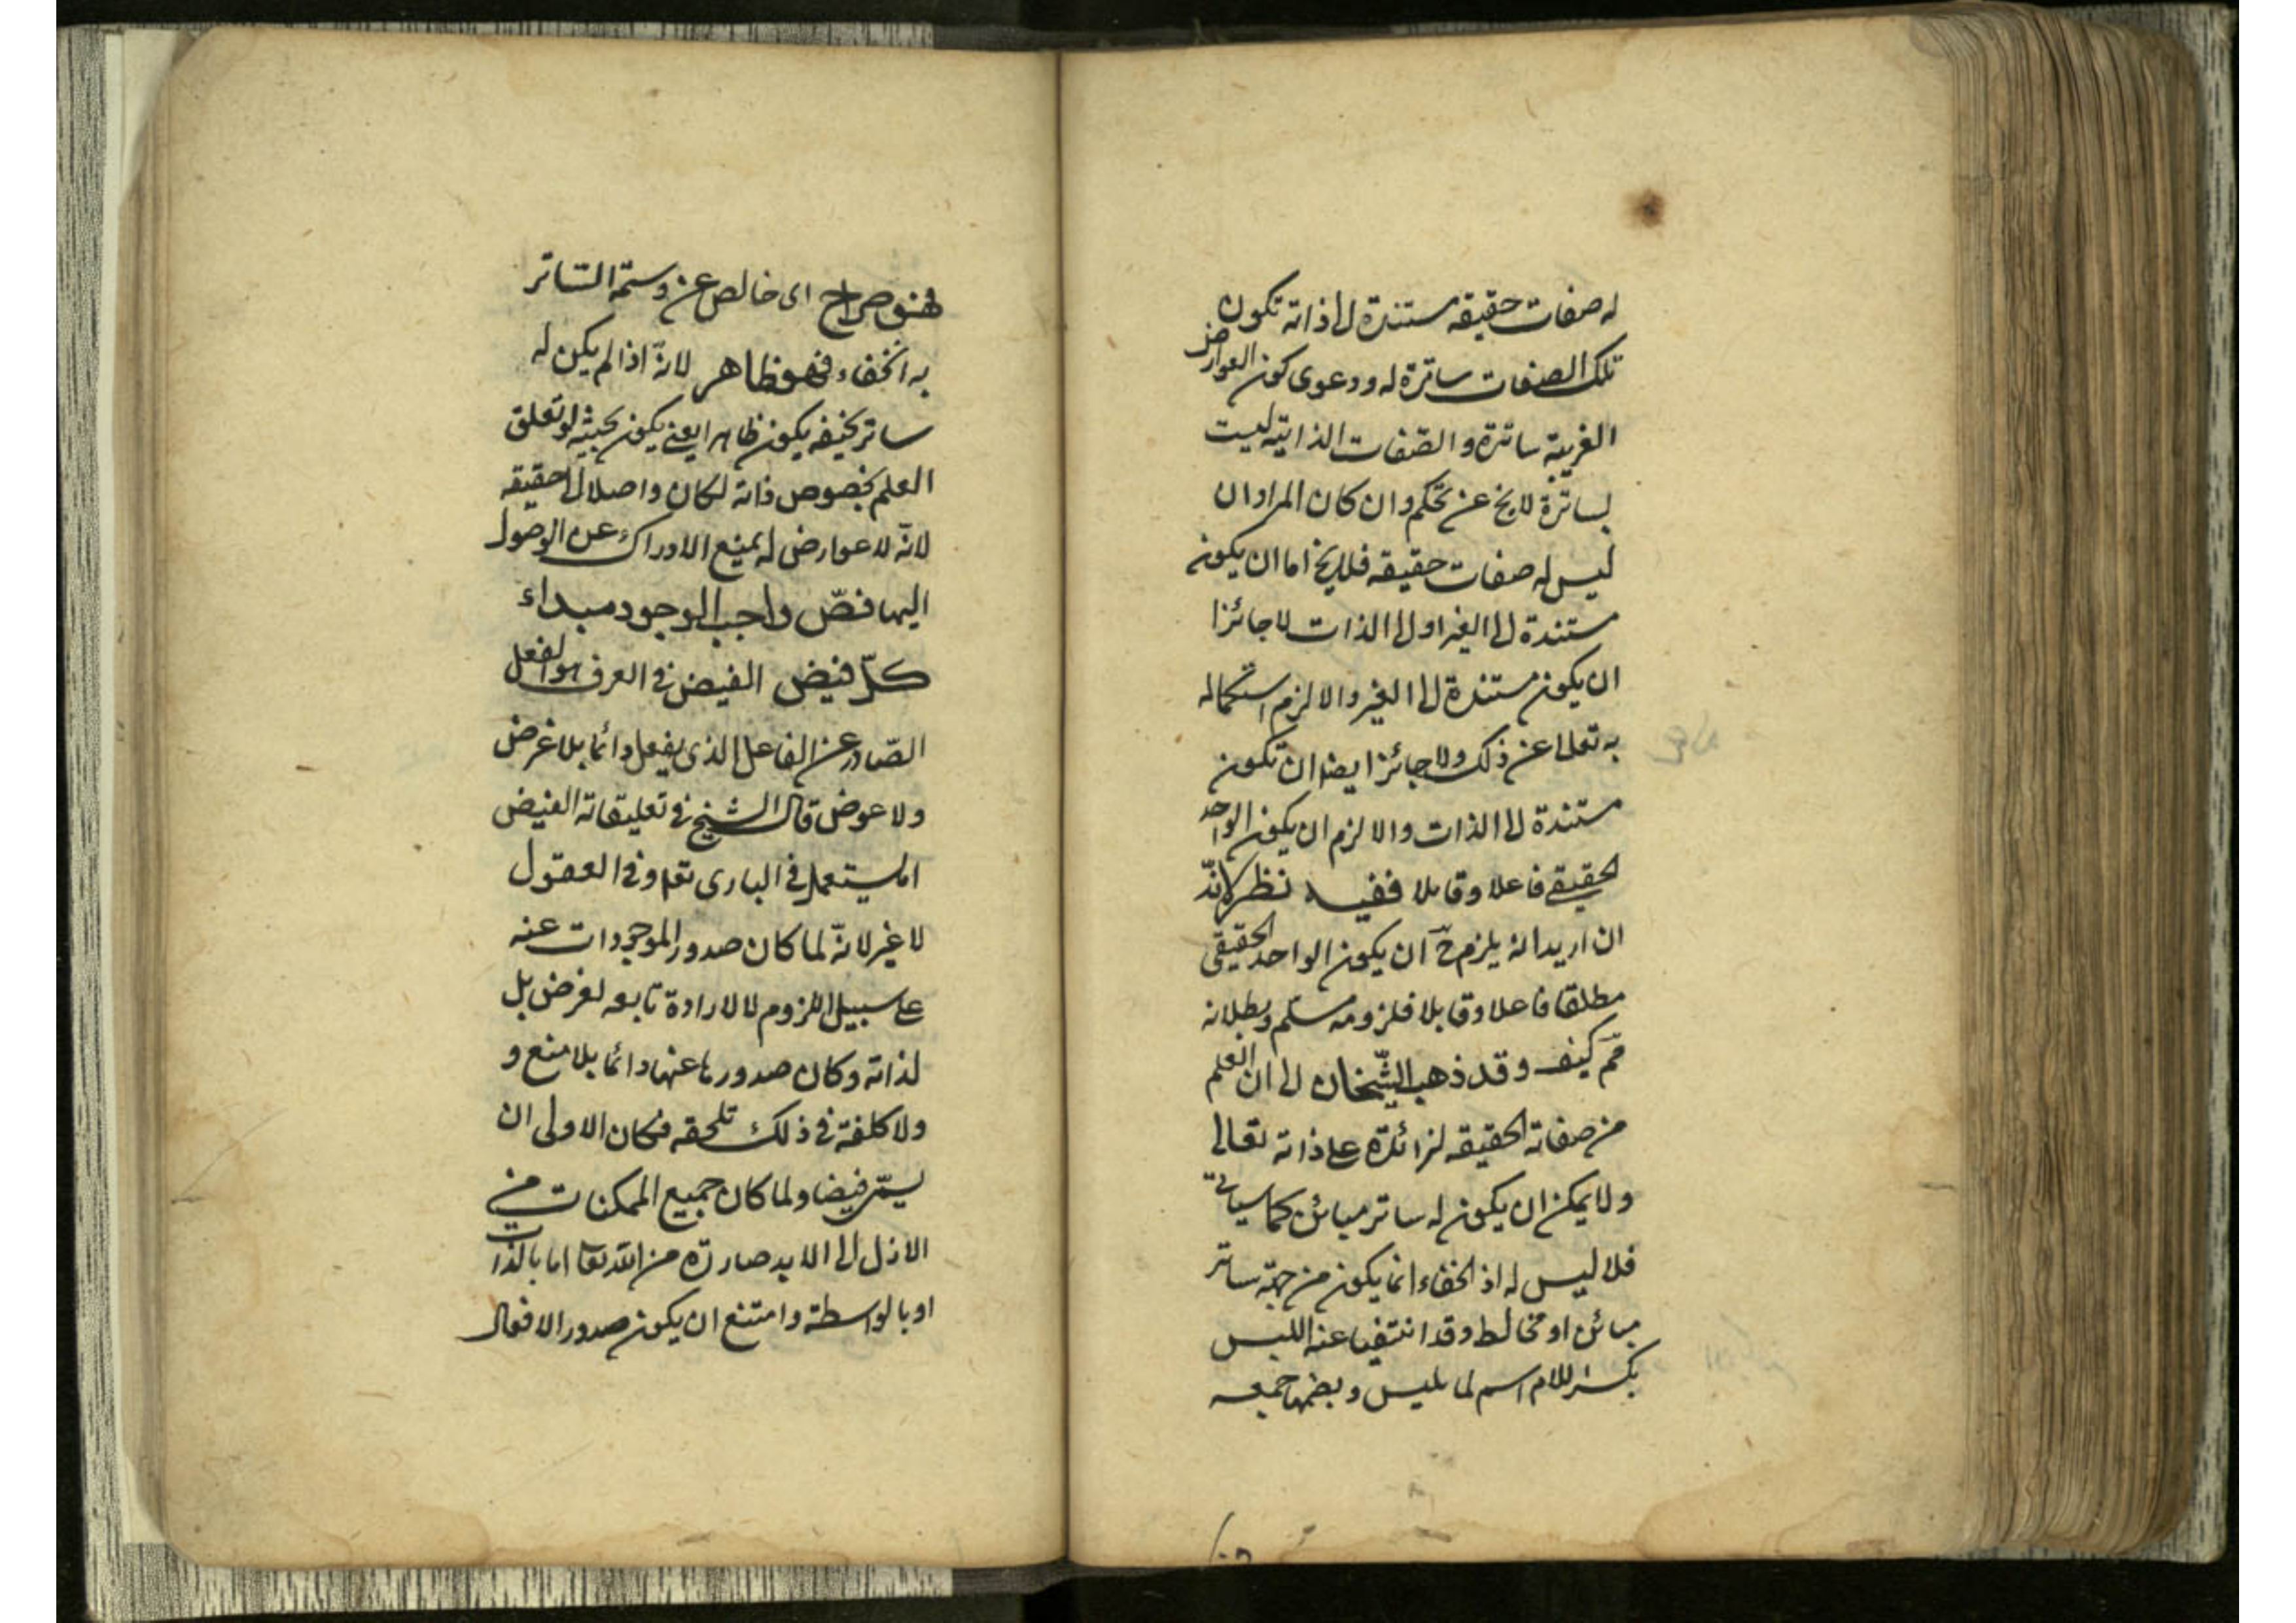 له صفات حقيقه مستندة الى ذاته تكون
تلك الصفات ساترة له ودعوى كون العوارض
الغريبة ساترة والصفات الذاتية ليست
بساترة لا يخ عن تحكم وان كان المراد ان
ليس له صفات حقيقه فلا يخ اما ان يكون
مستندة الى الغير او الى الذات لا جائزا
ان يكون مستندة الى الغير والا لزم استكماله
به تعالى عن ذلك ولا جائزا ايضا ان تكون
مستندة الى الذات والا لزم ان يكون الواحد
الحقيقي فاعلا وقابلا ففيه نظر لانّه
ان اريد انه يلزم حّ ان يكون الواحد الحقيقى
مطلقا فاعلا وقابلا فلزومه مسلّم وبطلانه
مم كيف وقد ذهب الشّيخان الى ان العلم
من صفاته الحقيقه لزائدة على ذاته تعالى
ولا يمكن ان يكون له ساتر مبائن كما سياتى
فلا ليس له اذ الخفاء انما يكون من جهة ساتر
مبائن او مخالط وقد انتفيا عنه اللبس
بكسر اللام اسم لما يلبس وبضمها جمعه
فهو صراح اى خالص عن وسمة التساتر
به الخفاء فهو ظاهر لانّه اذا لم يكن له
ساتر يخفيه يكون ظاهرا يعنى يكون بحيث لو تعلق
العلم بخصوص ذاته لكان واصلا الى حقيقه
لانّه لا عوارض له يمنع الادراك عن الوصول
اليها فصّ واجب الوجود مبداء
كلّ فيض الفيض فى العرف هو الفعل
الصّادر عن الفاعل الذى يفعل دائما بلا غرض
ولا عوض قال الشيخ فى تعليقاته الفيض
انما يستعمل فى البارى تعا وفى العقول
لا غير لانّه لما كان صدور الموجودات عنه
على سبيل اللزوم لا لارادة تابعه لغرض بل
لذاته وكان صدورها عنها دائما بلا منع و
ولا كلفة فى ذلك تلحقه فكان الاولى ان
يسمّى فيضا ولما كان جميع الممكنات من
الازل الى الابد صادرة من الله تعا اما بالذات
او بالواسطة وامتنع ان يكون صدور الافعال